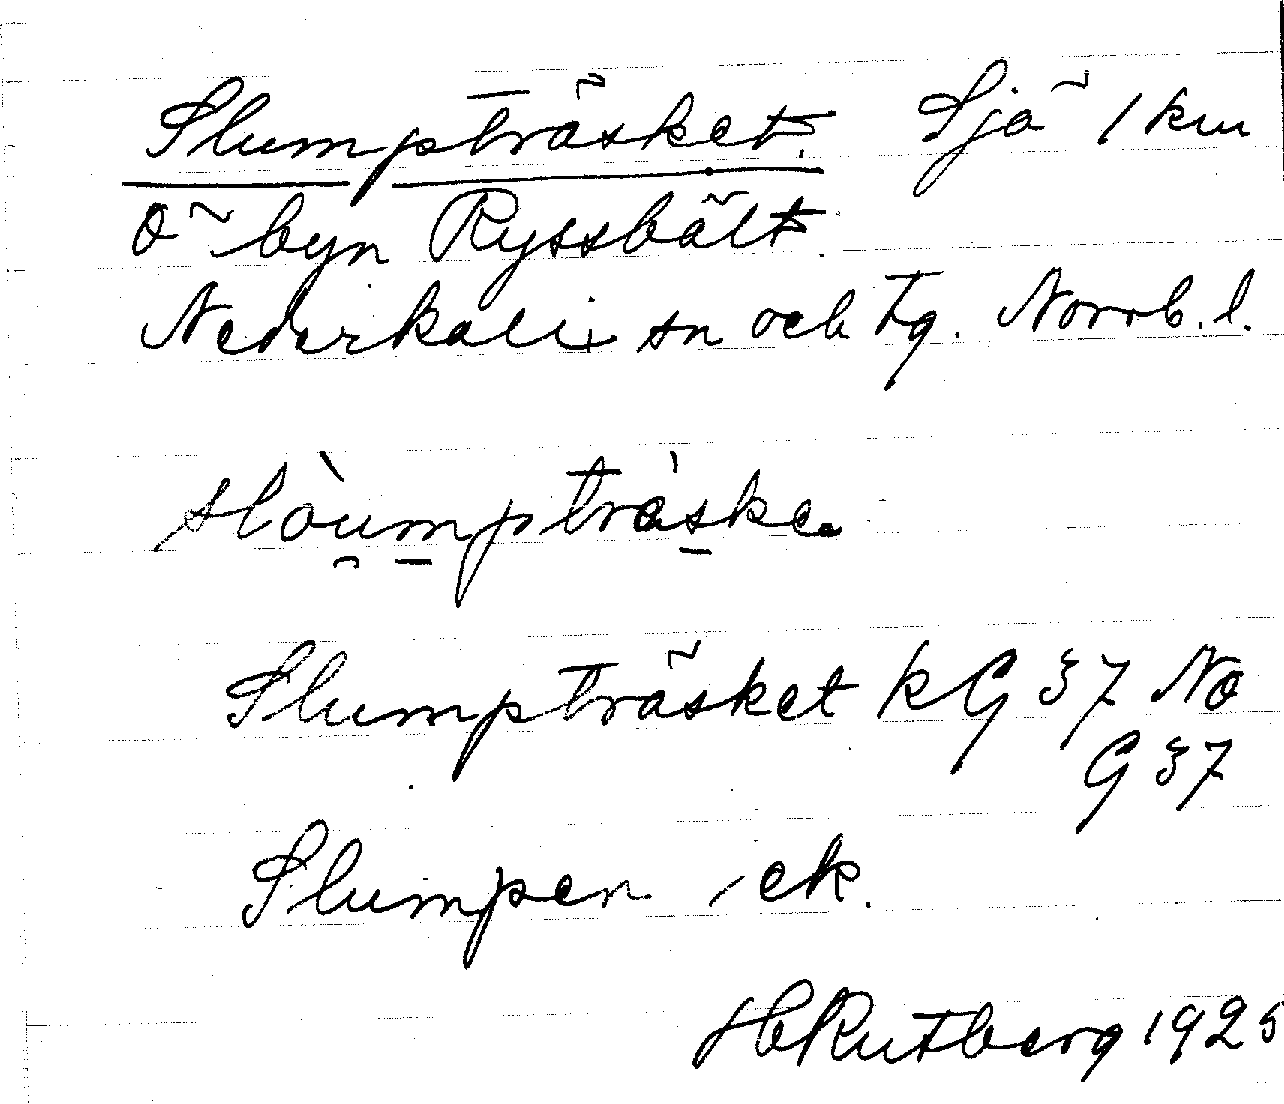 Slumpträsket. Sjö 1 km
Ö byn Ryssbält.
Nederkalix sn och tg. Norrb. l.
slòumpträske
Slumpträsket kG 37 No
G 37
Slumpen, ek.
H Rutberg 1925